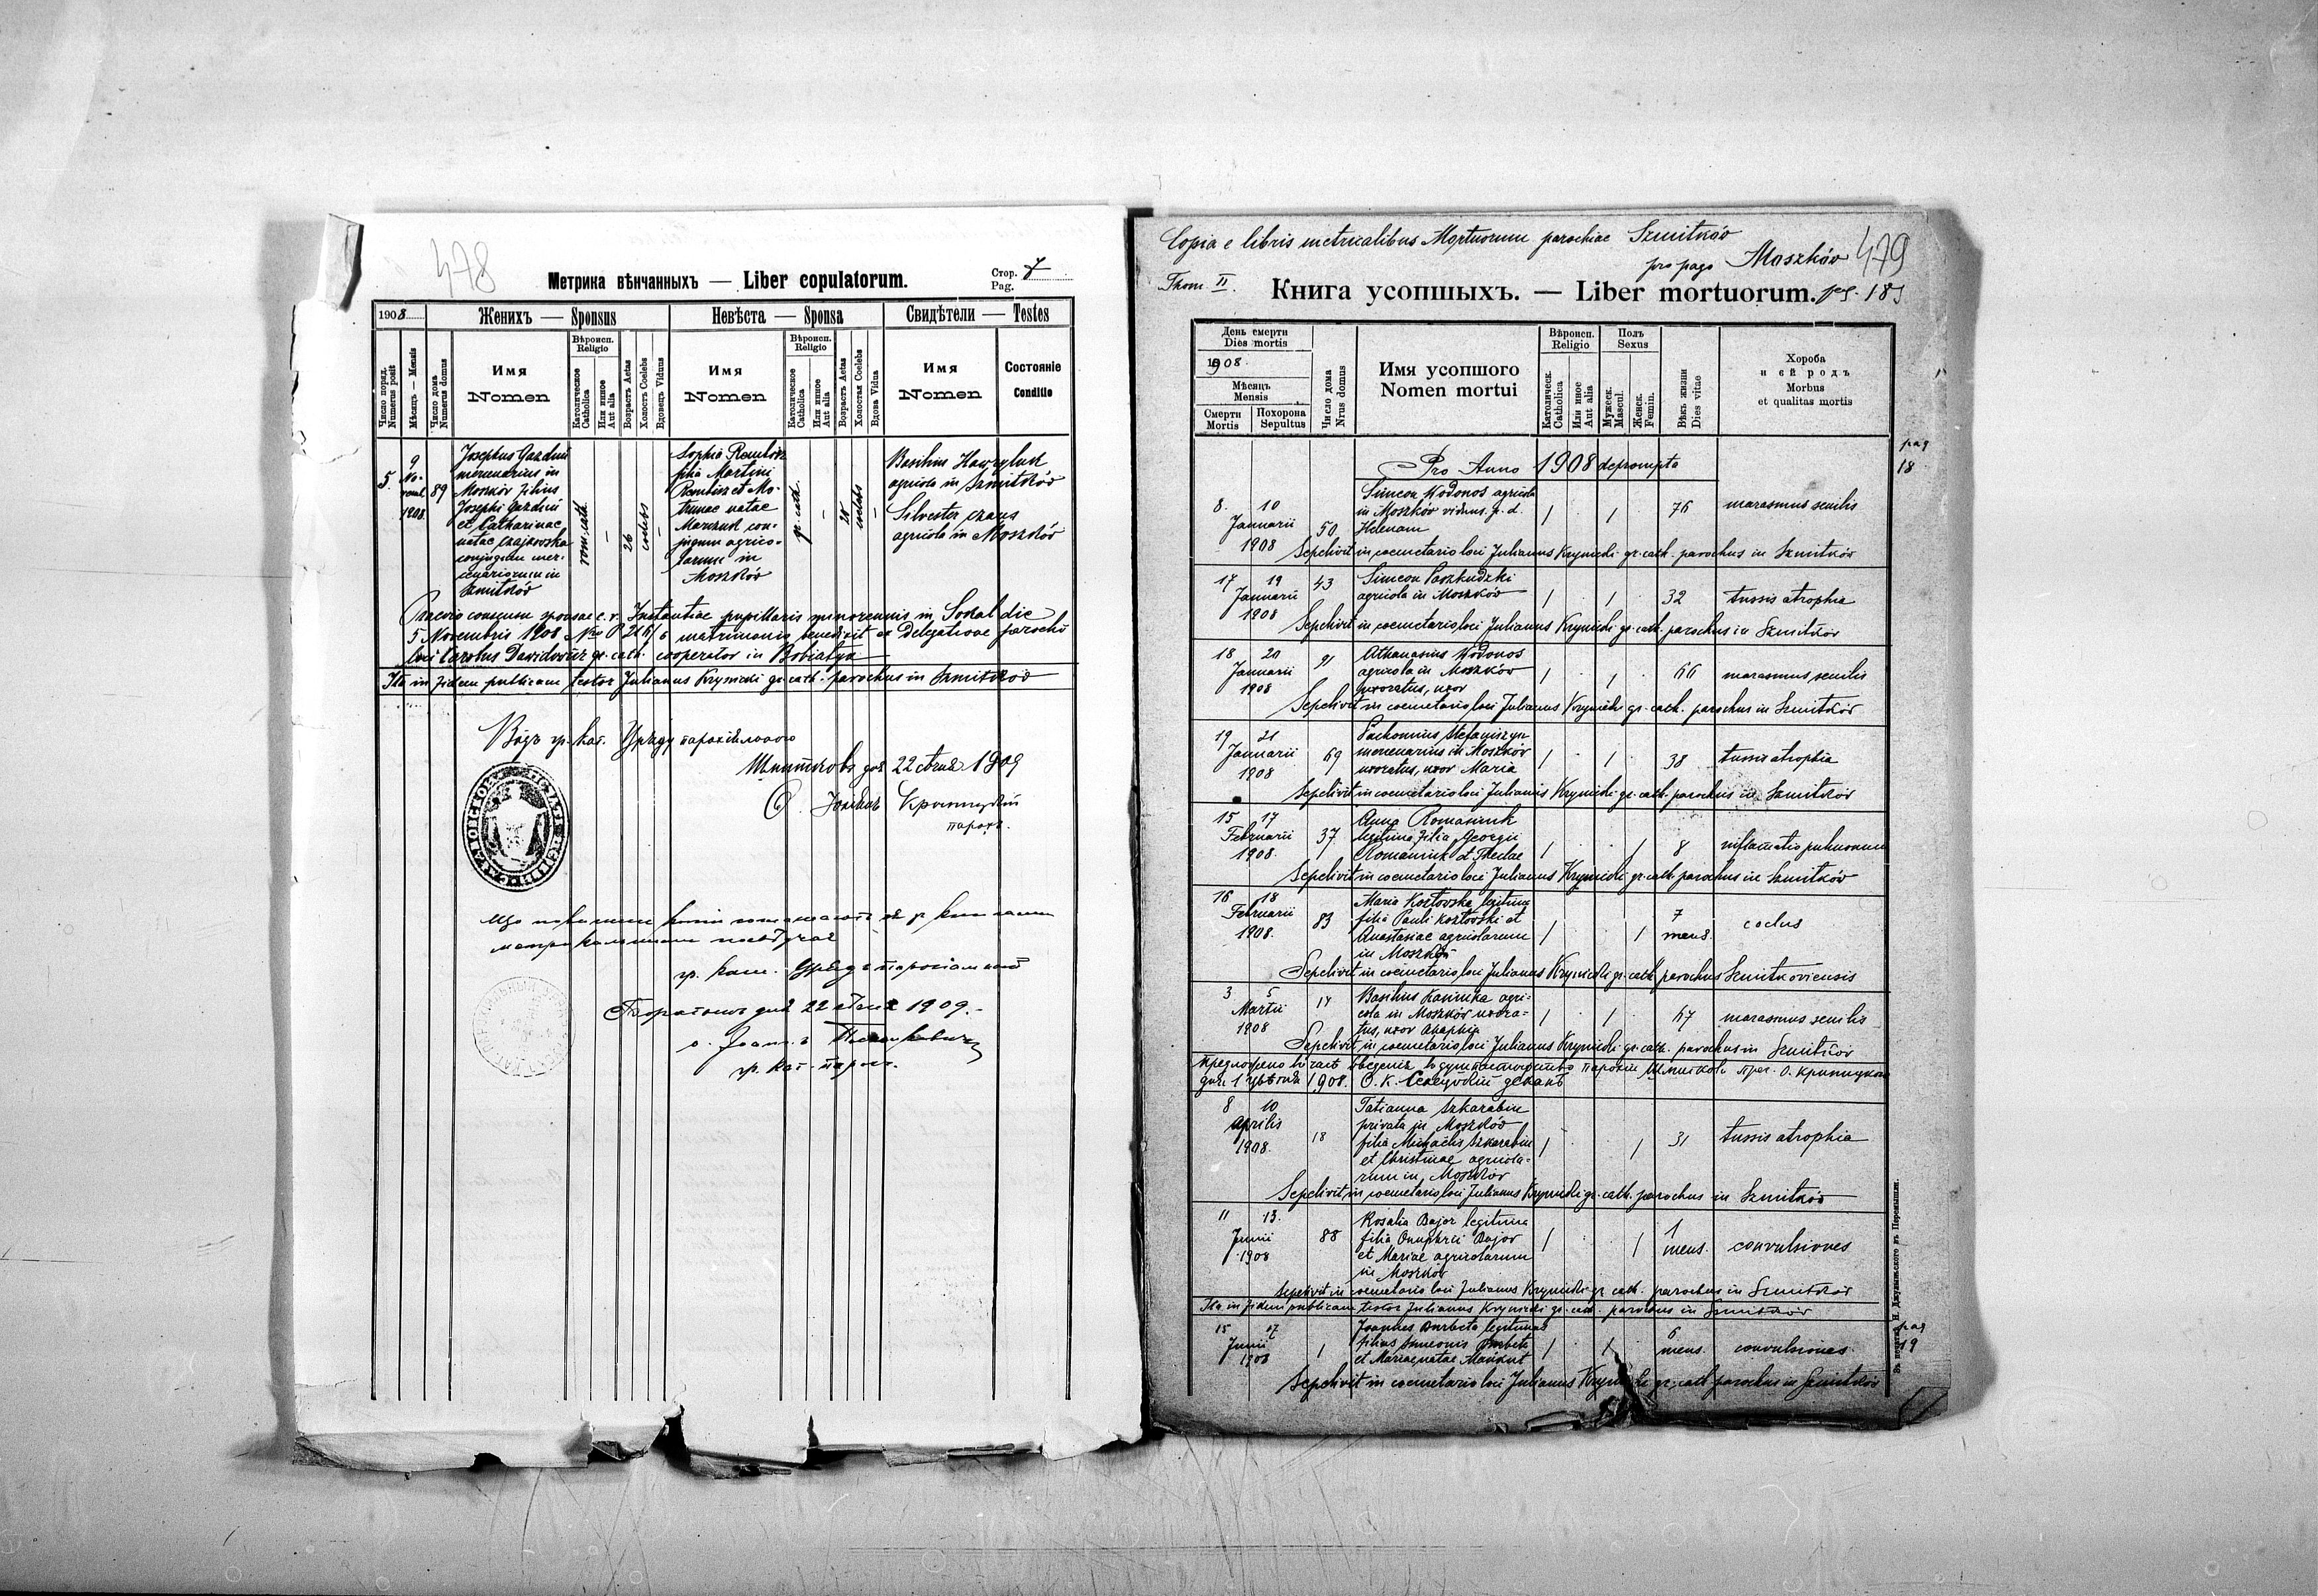 478
Метрика вѣнчанныхъ — Liber copulatorum.
Стор. 7
Pag.
1908
Женихъ — Sponsus
Невѣста — Sponsa
Свидѣтели — Testes
Число поряд.
Numerus posit
Мѣсяцъ — Mensis
Число дома
Numerus domus
Имя
Nomen
Вѣроисп.
Religio
Католическое
Catholica
Или иное
Aut alia
Возрастъ Aetas
Холостъ Coelebs
Вдовецъ Viduus
Имя
Nomen
Вѣроисп.
Religio
Католическое
Catholica
Или иное
Aut alia
Возрастъ Aetas
Холостая Coelebs
Вдова Vidua
Имя
Nomen
Состояніе
Conditio
5.
9
No-
1908.
89
Josephus
mercenarius in
Moszków filius
Josephi
et Catharinae
natae Czajkowska
conjugum mer-
cenariorum in
Szmitków
rom. cath.
—
26
coelebs
—
Sophia
filia Martini
et Mo-
trunae natae
con-
jugum agrico-
larum in
Moszków
gr. cath.
—
coelebs
—
Basilius Hawryluk
agricola in Szmitków
Silvester
agricola in Moszków
Praevio consensu sponsae c. r. Instantiae pupillaris minorennis in Sokal die
5 Novembris 1908 matrimonio benedixit ex Delegatione parochi
loci Carolus Dawidowicz gr. cath. cooperator in Bobiatyn
Ita in fidem publicam testor Julianus Krynicki gr. cath. parochus in Szmitków
Відъ гр. кат. Уряду парохіяльного
дня 22 1909
О. Юліянъ Крыницкій
парохъ.
гр. кат.
дня 22 1909.
гр. кат. парох.
Copia e libris metricalibus Mortuorum parochiae Szmitków
pro pago Moszków
479
Thom II.
Книга усопшыхъ. — Liber mortuorum.
pag. 18
День смерти
Dies mortis
1908.
Мѣсяцъ
Mensis
Смерти
Mortis
Похорона
Sepultus
Число дома
Nrus domus
Имя усопшого
Nomen mortui
Вѣроисп.
Religio
Католическ.
Catholica
Или иное
Aut alia
Полъ
Sexus
Мужеск.
Mascul.
Женск.
Femin.
Вѣкъ жизни
Dies vitae
Хороба
и єѣ родъ
Morbus
et qualitas mortis
pag
18
Pro Anno 1908 deprompta
8. 10
Januarii
1908
50
Simeon Wodonos agricola
in Moszków viduus p. d.
Helenam
1 . 1 . 76 marasmus senilis
Sepelivit in coemetario loci Julianus Krynicki gr. cath. parochus in Szmitków
17 19
Januarii
1908
43
Simeon Paszkudzki
agricola in Moszków
1 . 1 . 32 tussis atrophia
Sepelivit in coemetario loci Julianus Krynicki gr. cath. parochus in Szmitków
18 20
Januarii
1908
91
Athanasius Wodonos
agricola in Moszków
uxoratus, uxor
1 . 1 . 66 marasmus senilis
Sepelivit in coemetario loci Julianus Krynicki gr. cath. parochus in Szmitków
19 21
Januarii
1908
69
Pachomius Stefaniszyn
mercenarius in Moszków
uxoratus, uxor Maria
1 . 1 . 38 tussis atrophia
Sepelivit in coemetario loci Julianus Krynicki gr. cath. parochus in Szmitków
15 17
Februarii
1908.
37
Anna Romaniuk
legitima filia Georgii
Romaniuk et Theclae
1 . . 1 8 inflamatio pulmonum
Sepelivit in coemetario loci Julianus Krynicki gr. cath. parochus in Szmitków
16 18
Februarii
1908.
83
Maria Kozłowska legitima
filia Pauli Kozłowski et
Anastasiae agricolarum
in Moszków
1 . . 1 7
mens.
Sepelivit in coemetario loci Julianus Krynicki gr. cath. parochus Szmitkoviensis
3 5
Martii
1908
14
Basilius agri-
cola in Moszków uxora-
tus, uxor Ahaphia
1 . 1 . 67 marasmus senilis
Sepelivit in coemetario loci Julianus Krynicki gr. cath. parochus in Szmitków
1908. О. К.
8 10
Aprilis
1908.
18
Tatianna Szkarabin
privata in Moszków
filia Michaelis Szkarabin
et Christinae agricola-
rum in Moszków
1 . . 1 31 tussis atrophia
Sepelivit in coemetario loci Julianus Krynicki gr. cath. parochus in Szmitków
11 13.
Junii
1908
88
Rosalia Bojor legitima
filia Onuphrii Bojor
et Mariae agricolarum
in Moszków
1 . . 1 1
mens. convulsiones
Sepelivit in coemetario loci Julianus Krynicki gr. cath. parochus in Szmitków
Ita in fidem publicam testor Julianus Krynicki gr. cath. parochus in Szmitków
15 17
Junii
1908
1
Joannes Burbeta legitimus
filius Simeonis Burbeta
et Mariae natae
1 . 1 . 6
mens. convulsiones.
pag
19
Sepelivit in coemetario loci Julianus Krynicki gr. cath. parochus in Szmitków